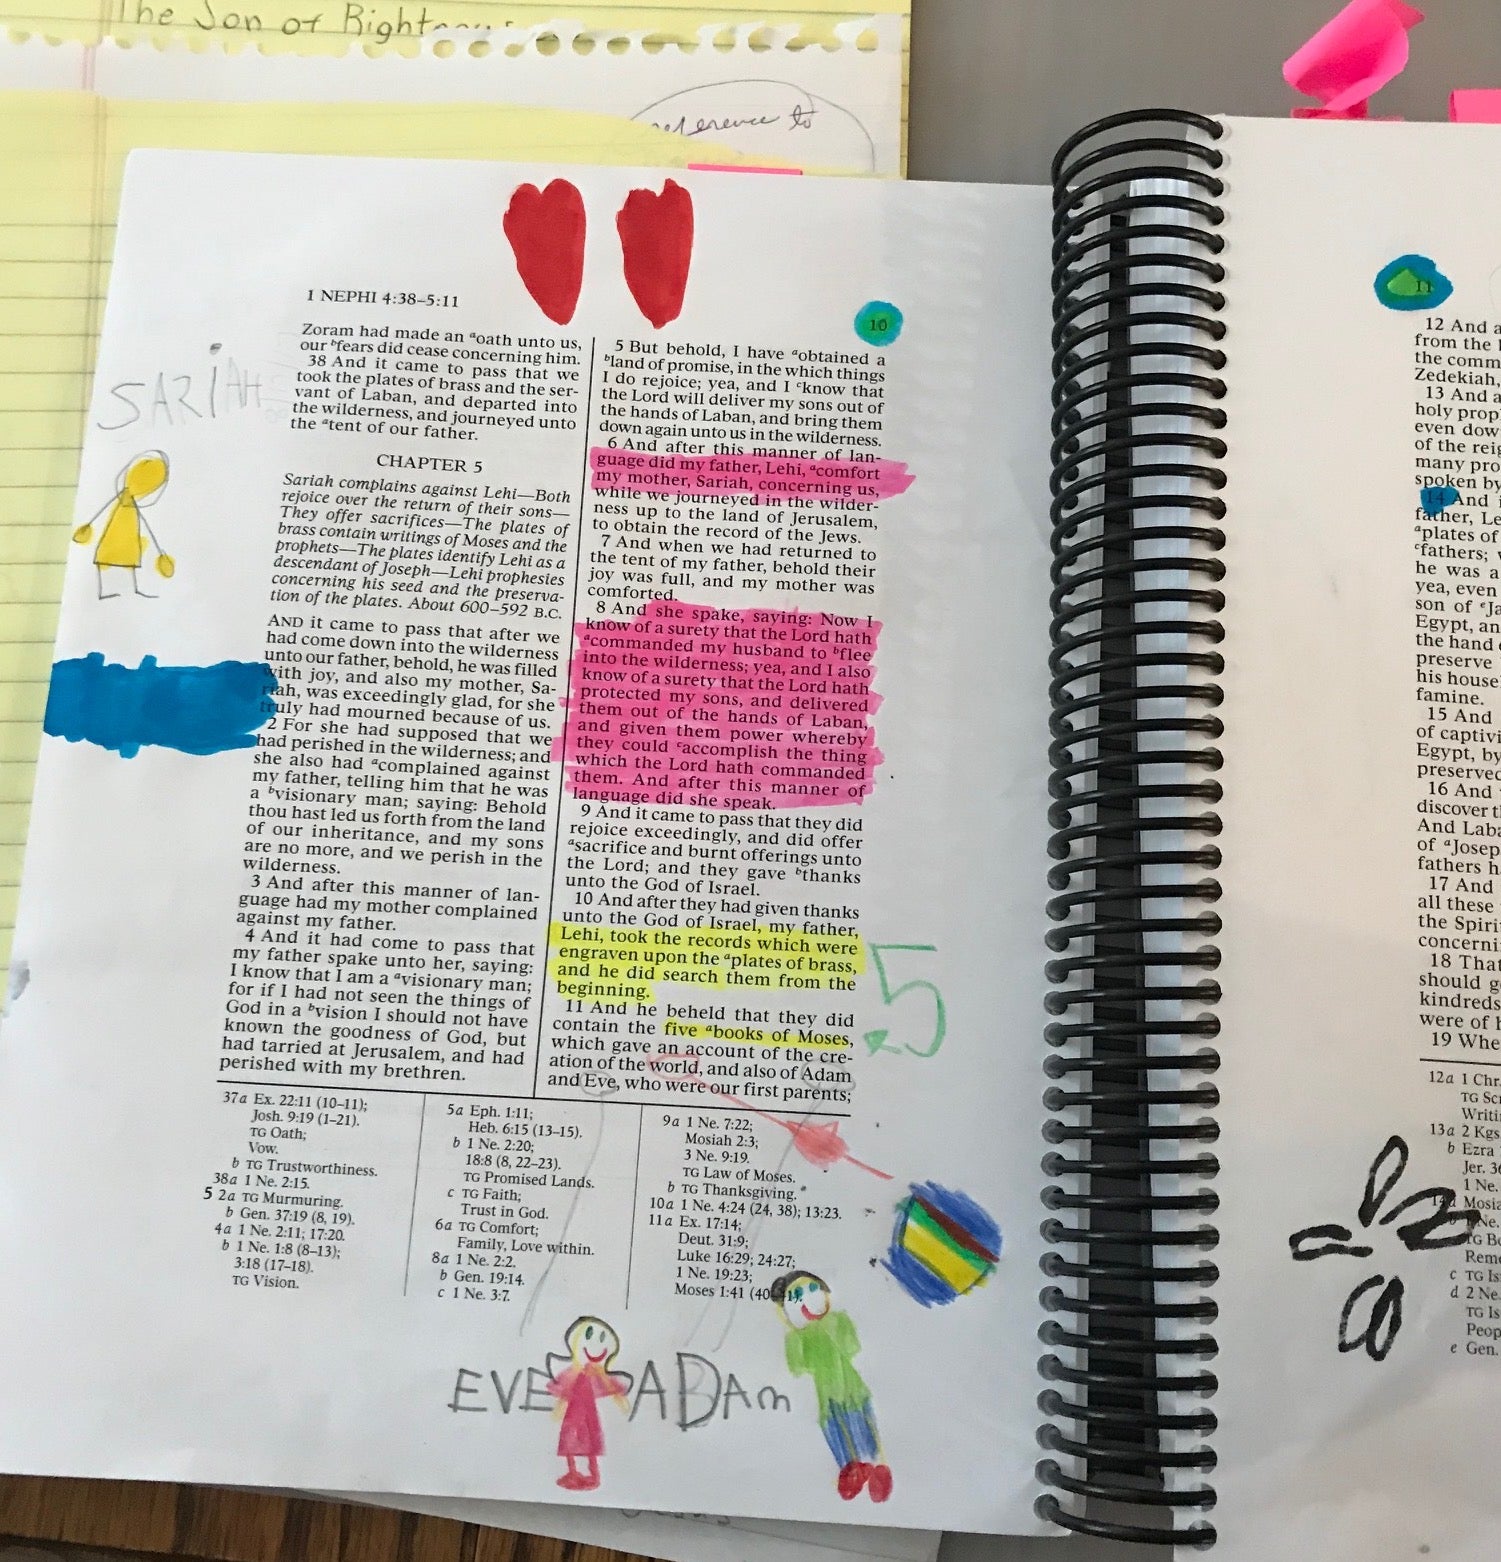 The Son of
reference to
1 NEPHI 4:38–5:11
10
Zoram had made an ᵃoath unto us,
our ᵇfears did cease concerning him.
38 And it came to pass that we
took the plates of brass and the ser-
vant of Laban, and departed into
the wilderness, and journeyed unto
the ᵃtent of our father.
SARIAH
CHAPTER 5
Sariah complains against Lehi—Both
rejoice over the return of their sons—
They offer sacrifices—The plates of
brass contain writings of Moses and the
prophets—The plates identify Lehi as a
descendant of Joseph—Lehi prophesies
concerning his seed and the preserva-
tion of the plates. About 600–592 B.C.
AND it came to pass that after we
had come down into the wilderness
unto our father, behold, he was filled
with joy, and also my mother, Sa-
riah, was exceedingly glad, for she
truly had mourned because of us.
2 For she had supposed that we
had perished in the wilderness; and
she also had ᵃcomplained against
my father, telling him that he was
a ᵇvisionary man; saying: Behold
thou hast led us forth from the land
of our inheritance, and my sons
are no more, and we perish in the
wilderness.
3 And after this manner of lan-
guage had my mother complained
against my father.
4 And it had come to pass that
my father spake unto her, saying:
I know that I am a ᵃvisionary man;
for if I had not seen the things of
God in a ᵇvision I should not have
known the goodness of God, but
had tarried at Jerusalem, and had
perished with my brethren.
5 But behold, I have ᵃobtained a
ᵇland of promise, in the which things
I do rejoice; yea, and I ᶜknow that
the Lord will deliver my sons out of
the hands of Laban, and bring them
down again unto us in the wilderness.
6 And after this manner of lan-
guage did my father, Lehi, ᵃcomfort
my mother, Sariah, concerning us,
while we journeyed in the wilder-
ness up to the land of Jerusalem,
to obtain the record of the Jews.
7 And when we had returned to
the tent of my father, behold their
joy was full, and my mother was
comforted.
8 And she spake, saying: Now I
know of a surety that the Lord hath
ᵃcommanded my husband to ᵇflee
into the wilderness; yea, and I also
know of a surety that the Lord hath
protected my sons, and delivered
them out of the hands of Laban,
and given them power whereby
they could ᶜaccomplish the thing
which the Lord hath commanded
them. And after this manner of
language did she speak.
9 And it came to pass that they did
rejoice exceedingly, and did offer
ᵃsacrifice and burnt offerings unto
the Lord; and they gave ᵇthanks
unto the God of Israel.
10 And after they had given thanks
unto the God of Israel, my father,
Lehi, took the records which were
engraven upon the ᵃplates of brass,
and he did search them from the
beginning.
11 And he beheld that they did
contain the five ᵃbooks of Moses,
which gave an account of the cre-
ation of the world, and also of Adam
and Eve, who were our first parents;
5
37a Ex. 22:11 (10–11);
Josh. 9:19 (1–21).
TG Oath;
Vow.
b TG Trustworthiness.
38a 1 Ne. 2:15.
5 2a TG Murmuring.
b Gen. 37:19 (8, 19).
4a 1 Ne. 2:11; 17:20.
b 1 Ne. 1:8 (8–13);
3:18 (17–18).
TG Vision.
5a Eph. 1:11;
Heb. 6:15 (13–15).
b 1 Ne. 2:20;
18:8 (8, 22–23).
TG Promised Lands.
c TG Faith;
Trust in God.
6a TG Comfort;
Family, Love within.
8a 1 Ne. 2:2.
b Gen. 19:14.
c 1 Ne. 3:7.
9a 1 Ne. 7:22;
Mosiah 2:3;
3 Ne. 9:19.
TG Law of Moses.
b TG Thanksgiving.
10a 1 Ne. 4:24 (24, 38); 13:23.
11a Ex. 17:14;
Deut. 31:9;
Luke 16:29; 24:27;
1 Ne. 19:23;
Moses 1:41 (40–41).
EVE ADAm
11
12 And a
from the
the comm
Zedekiah,
13 And a
holy prop
even dow
of the reig
many pro
spoken by
14 And i
father, Le
ᵃplates of
ᶜfathers;
he was a
yea, even
son of ᵉJa
Egypt, an
the hand
preserve
his house
famine.
15 And
of captivi
Egypt, by
preserved
16 And
discover t
And Laba
of ᵃJosep
fathers h
17 And
all these
the Spiri
concerni
18 That
should g
kindreds
were of
19 Whe
12a 1 Chr.
TG Sc
Writi
13a 2 Kgs
b Ezra
Jer. 3
1 Ne.
14a Mosia
b 1 Ne.
TG B
Reme
c TG Is
d 2 Ne.
TG Is
Peop
e Gen.